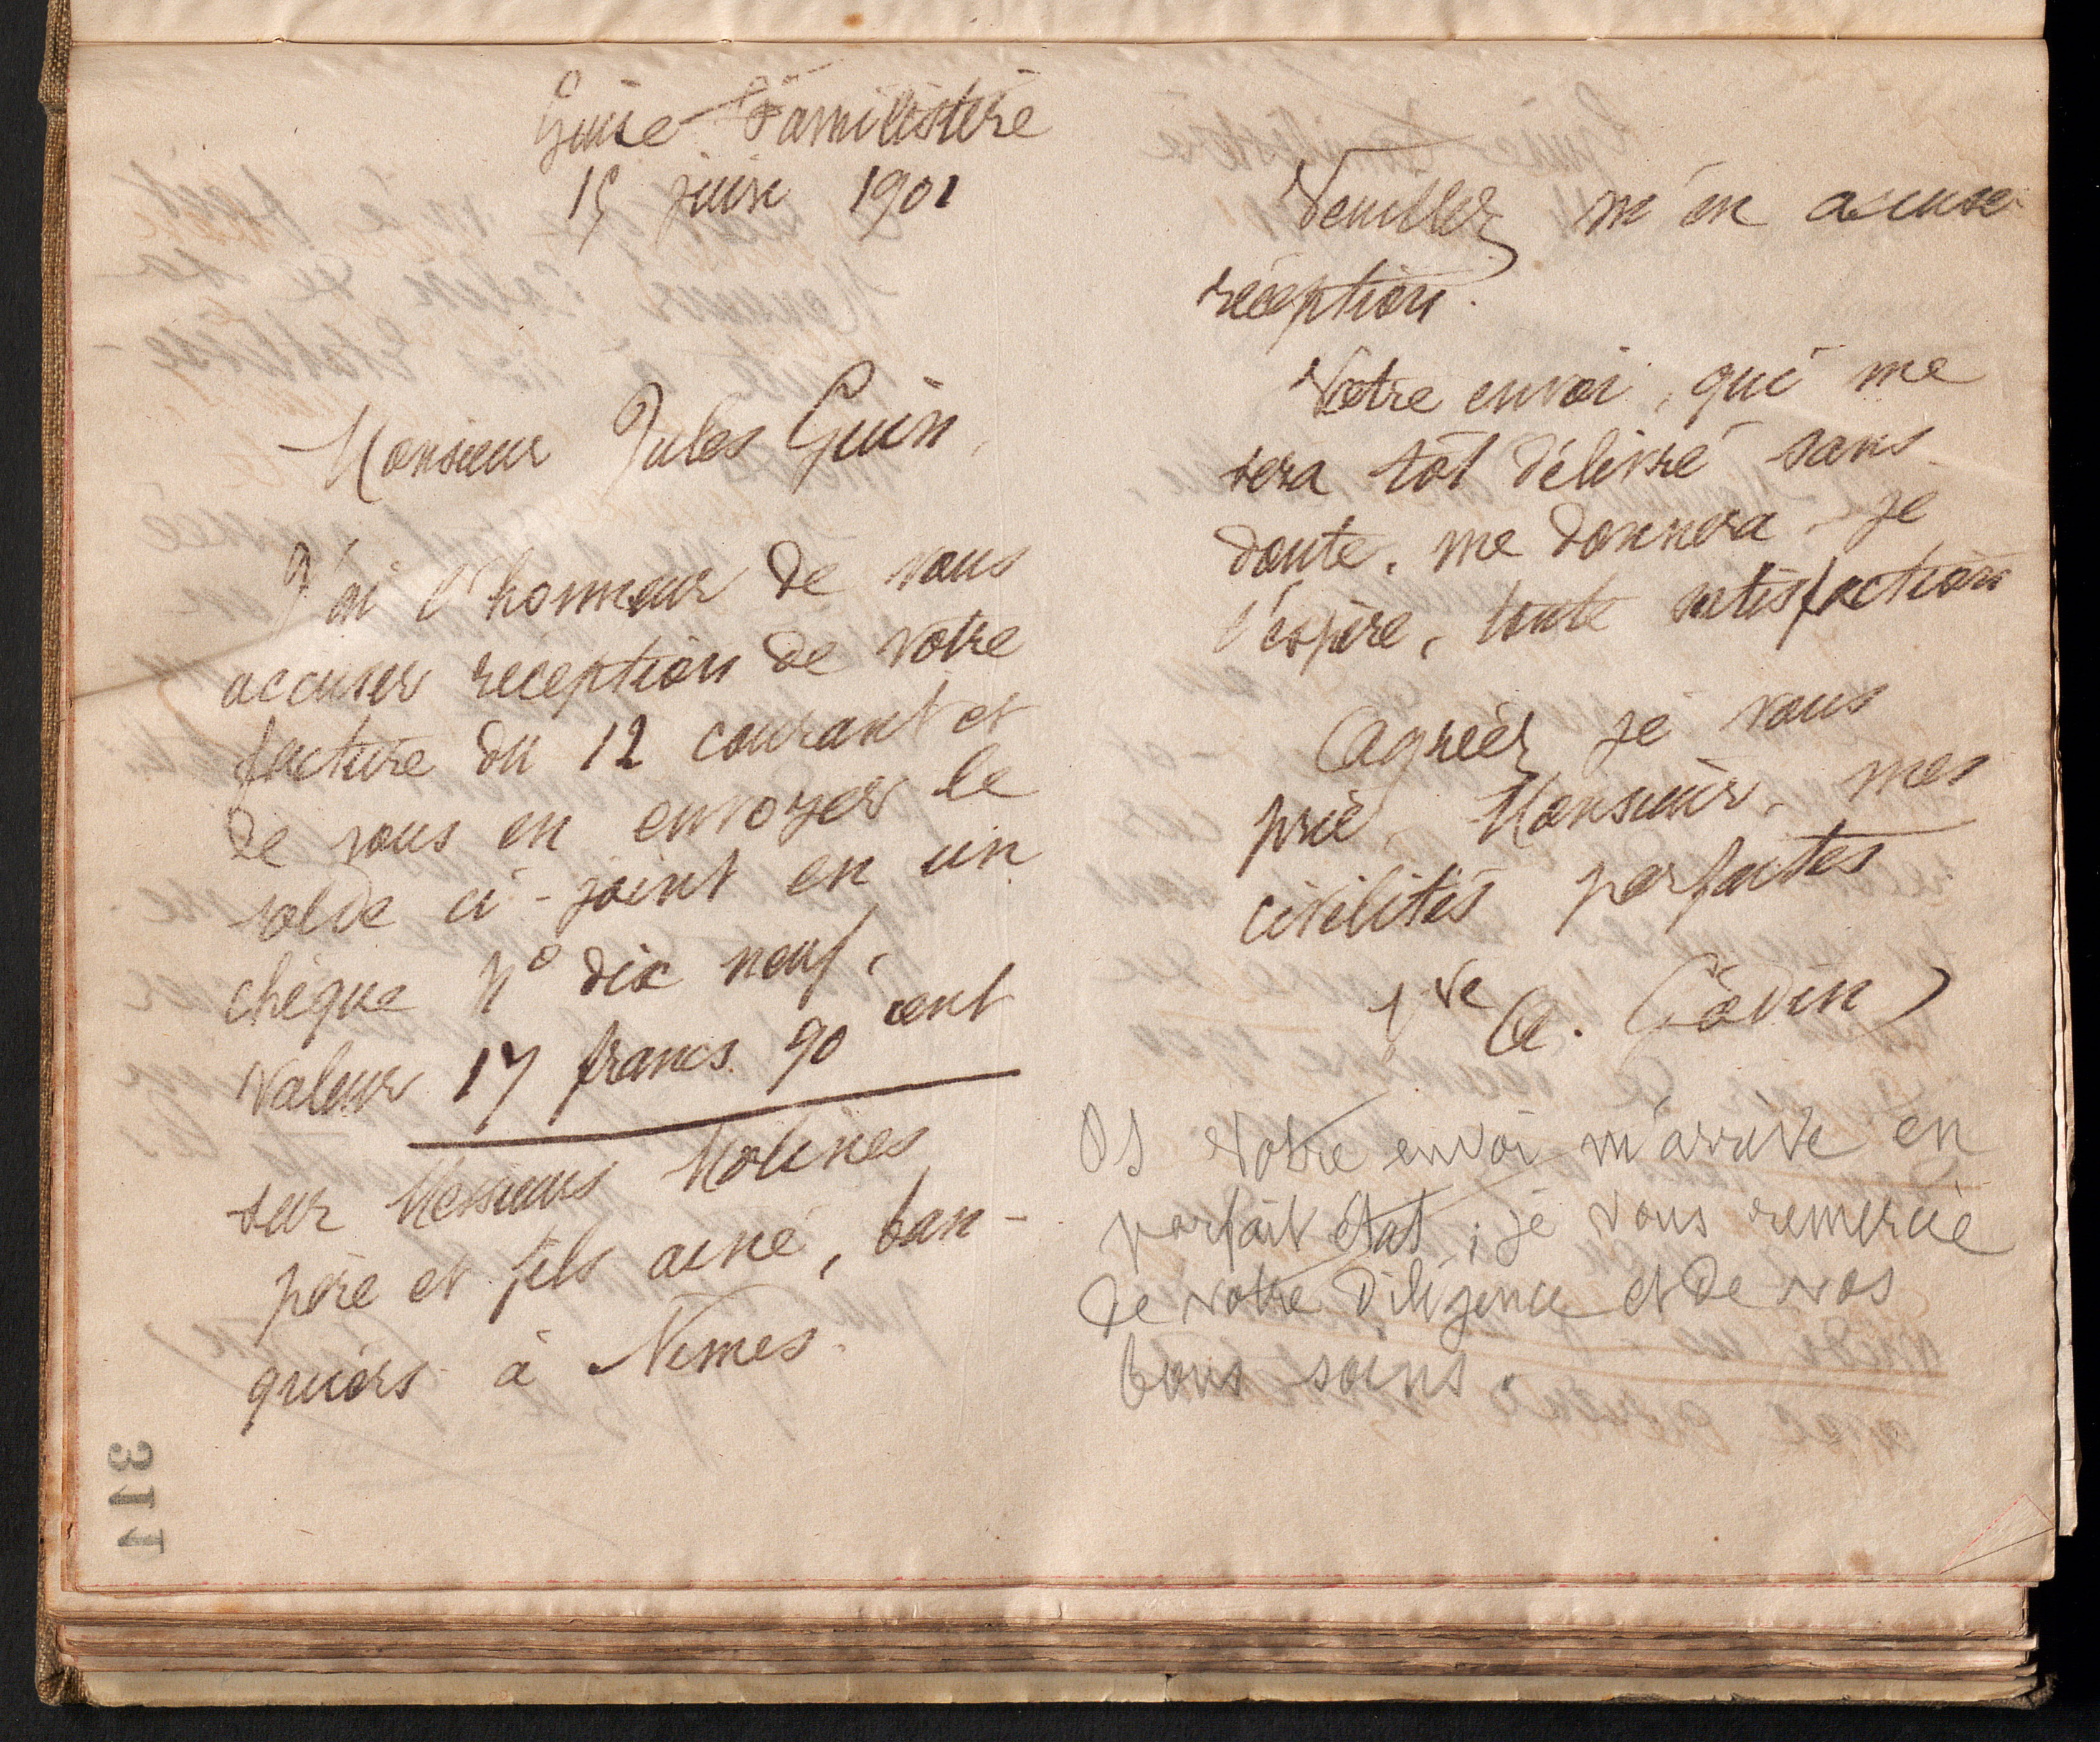 Guise Familistère
15 juin 1901
Monsieur Jules Guin,
J'ai l'honneur de vous
accuser réception de votre
facture du 12 courant et
de vous en envoyer le
solde ci-joint en un
chèque N° dix neuf,
Valeur 17 francs 90 cent
sur Messieurs Molines
père et fils ainé, ban-
quiers à Nîmes.
311
Veuillez m'en accuser
réception.
Votre envoi, qui me
sera tôt délivré sans
doute, me donnera, je
l'espère, toute satisfaction
Agréez je vous
prie, Monsieur, mes
civilités parfaites
Vve A. Godin
PS Votre envoi m'arrive en
parfait état ; je vous remercie
de votre diligence et de vos
bons soins.